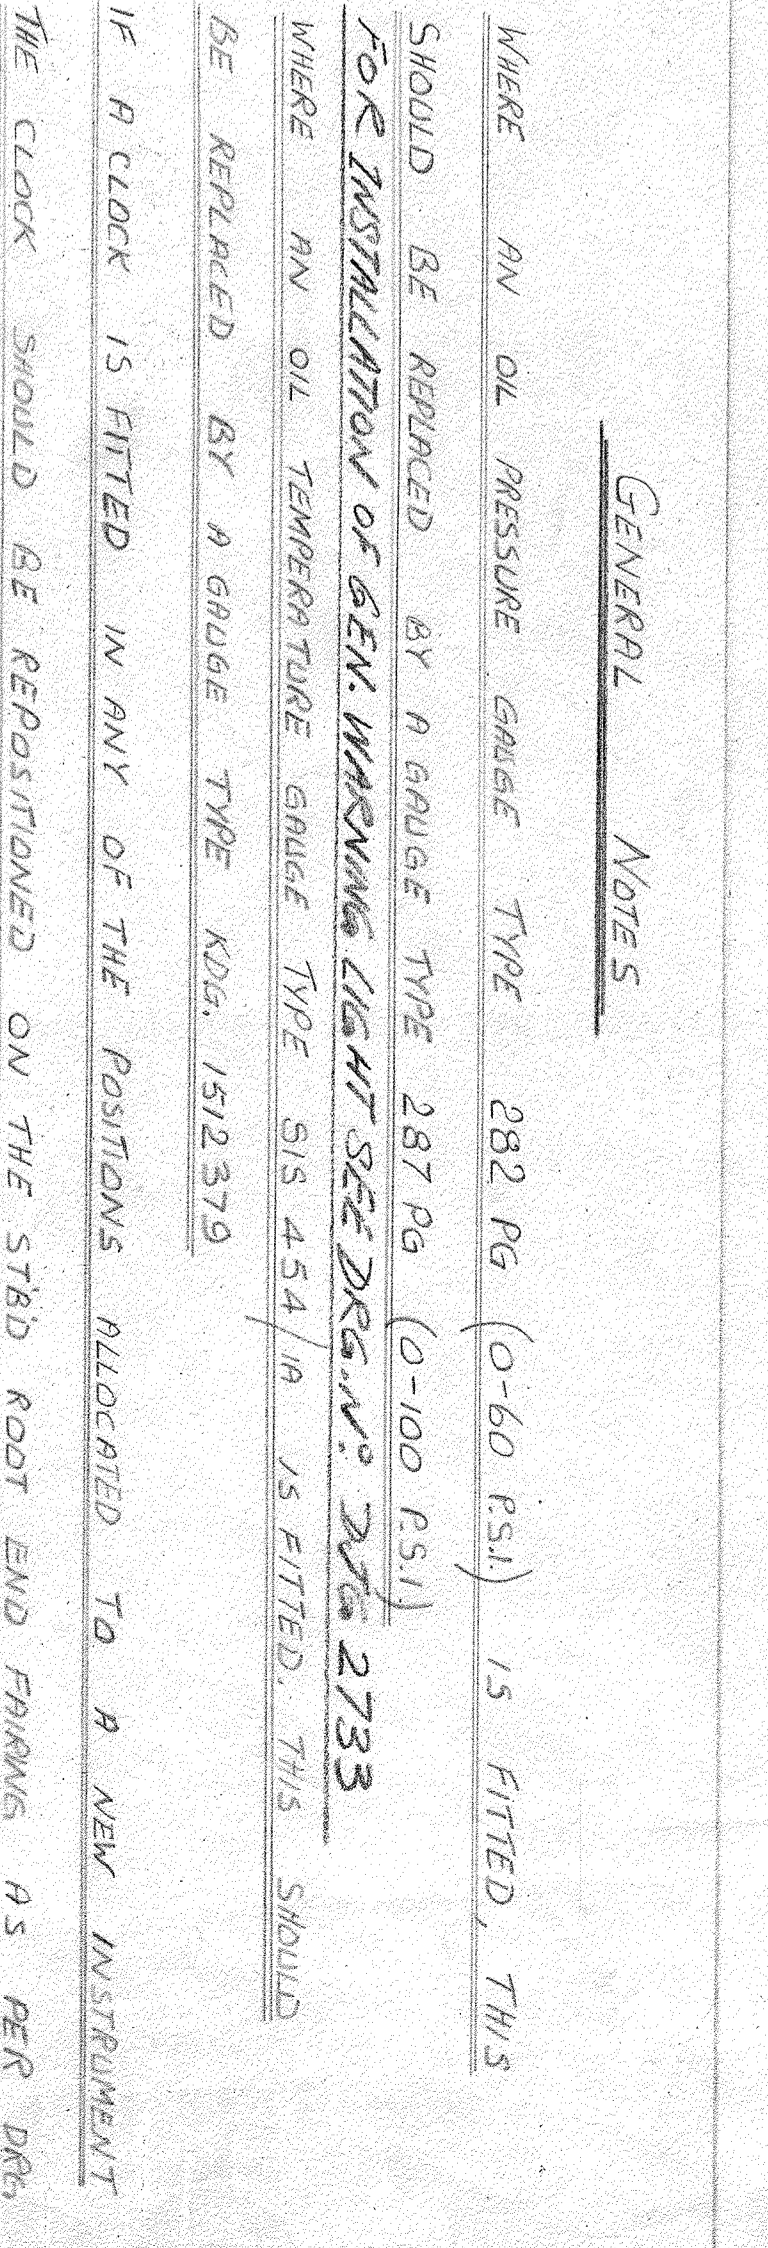 GENERAL NOTES
WHERE AN OIL PRESSURE GAUGE TYPE 282 PG (0-60 P.S.I.) IS FITTED, THIS
SHOULD BE REPLACED BY A GAUGE TYPE 287 PG (0-100 P.S.I.)
FOR INSTALLATION OF GEN. WARNING LIGHT SEE DRG. Nº 2733
WHERE AN OIL TEMPERATURE GAUGE TYPE SIS 454/1A IS FITTED. THIS SHOULD
BE REPLACED BY A GAUGE TYPE KDG. 1512379
IF A CLOCK IS FITTED IN ANY OF THE POSITIONS ALLOCATED TO A NEW INSTRUMENT
THE CLOCK SHOULD BE REPOSITIONED ON THE STB'D ROOT END FAIRING AS PER DRG